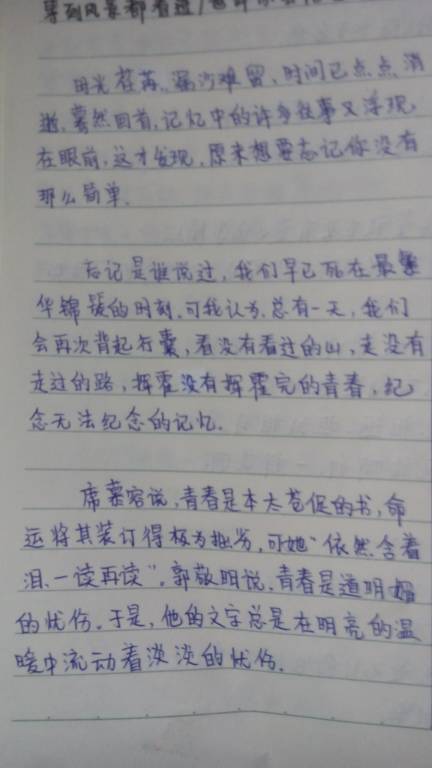 等到风景都看透
时光荏苒、漏沙难留,时间已点点消
逝,蓦然回首,记忆中的许多往事又浮现
在眼前,这才发现,原来想要忘记你没有
那么简单.
忘记是谁说过,我们早已死在最繁
华锦簇的时刻,可我认为,总有一天,我们
会再次背起行囊,看没有看过的山,走没有
走过的路,挥霍没有挥霍完的青春,纪
念无法纪念的记忆.
席慕容说,青春是本太苍促的书,命
运将其装订得极为拙劣,可她“依然含着
泪、一读再读”,郭敬明说,青春是道明媚
的忧伤.于是,他的文字总是在明亮的温
暖中流动着淡淡的忧伤.